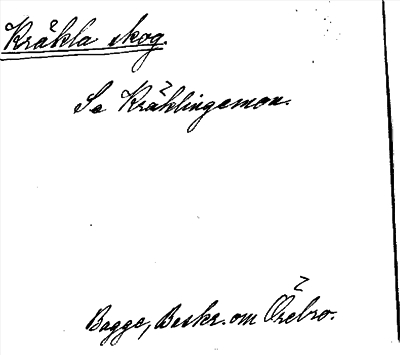 Kräkla skog.
Se Kräklingemon.
Bagge, Beskr. om Örebro.